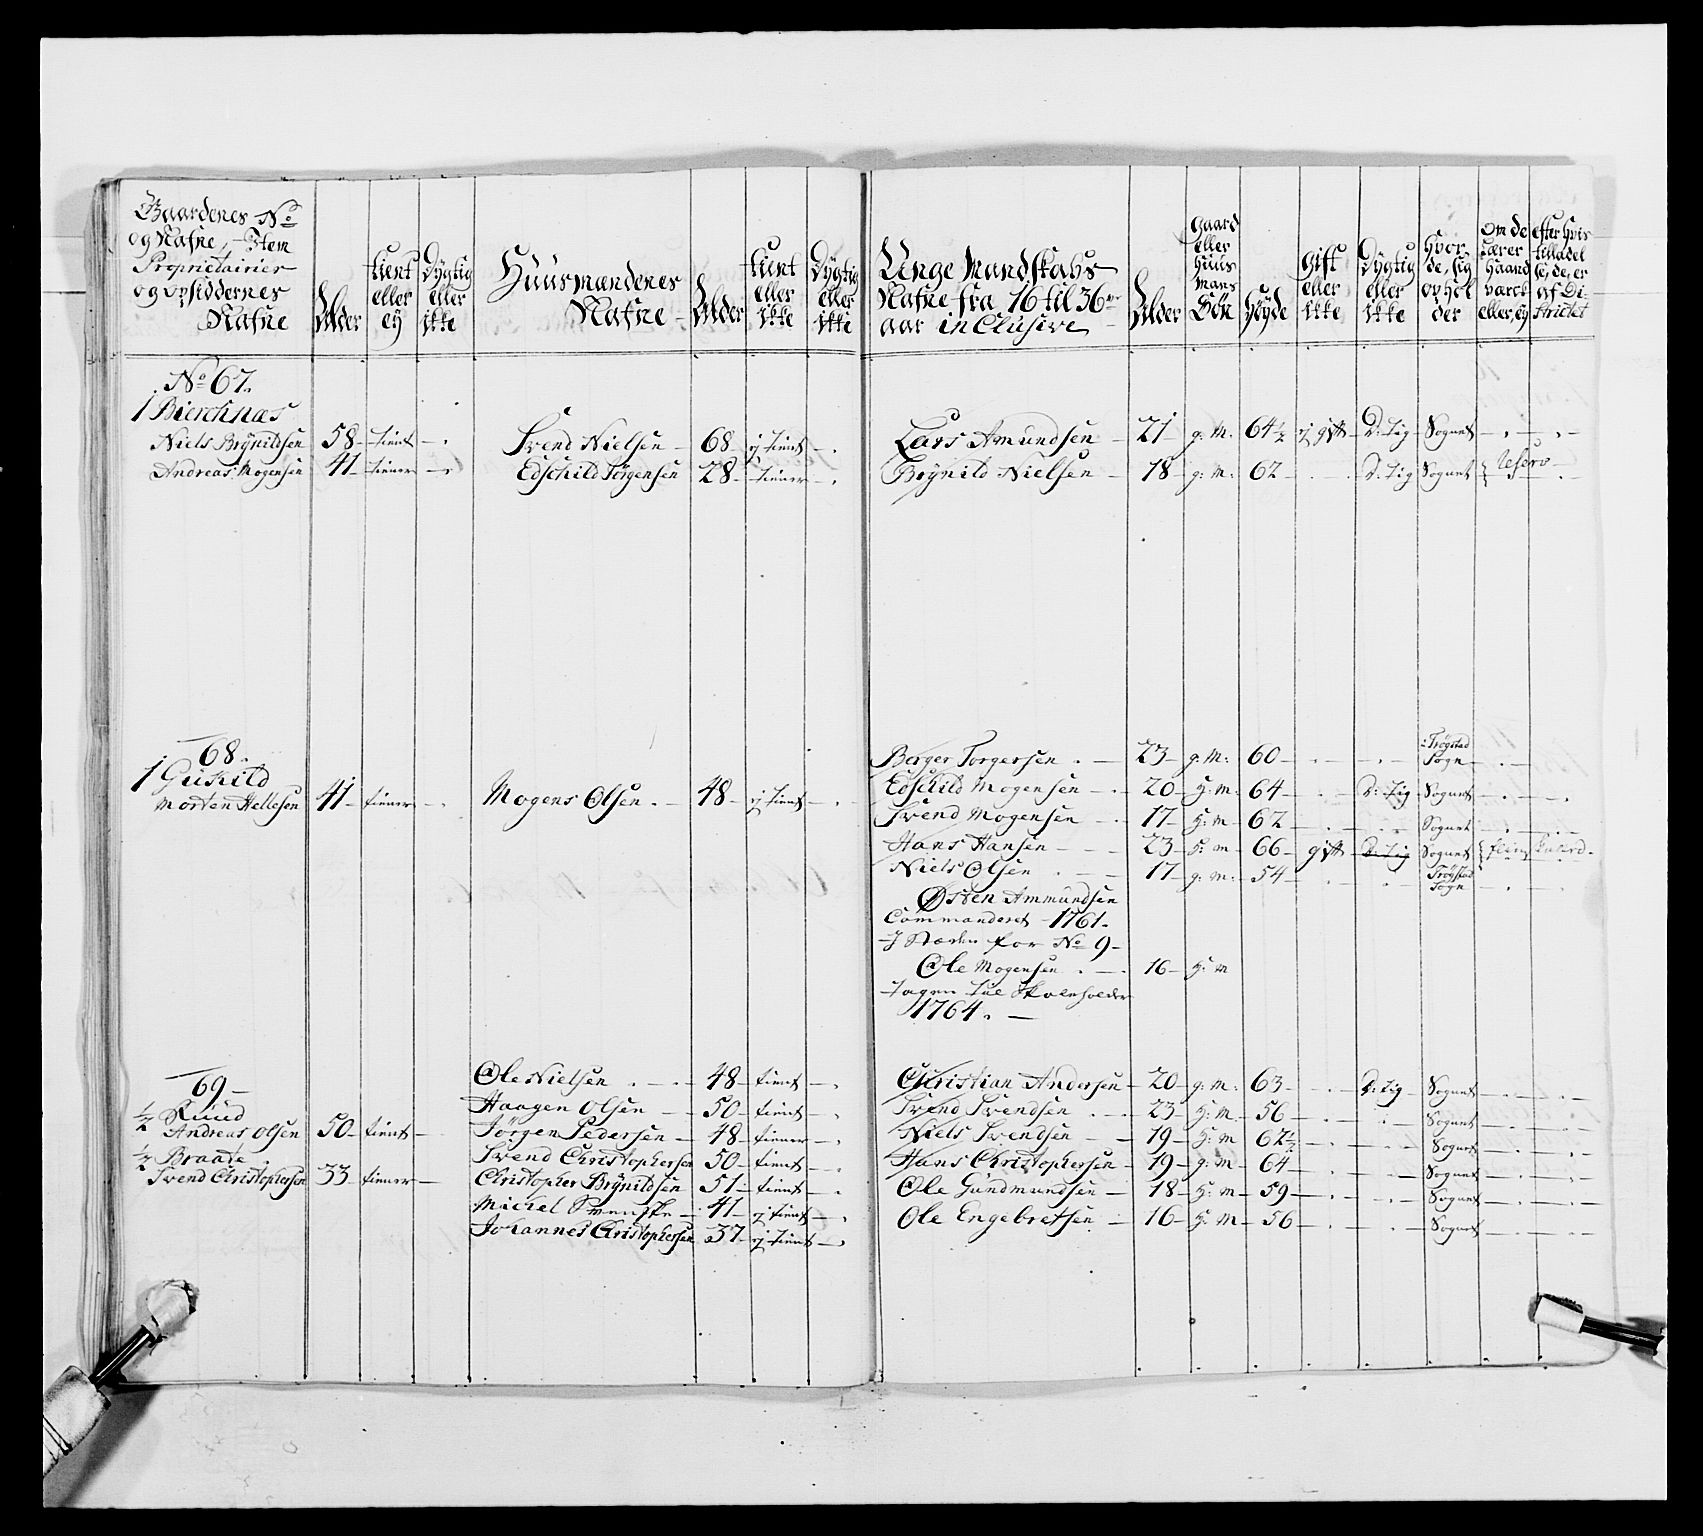 Gaardenes No
og Nafne, Item
Proprietairier
og opsiddernes
Nafne
Alder
tient eller ey
Dygtig eller ikke
Huusmændenes Nafne
Alder
tient eller ikke
Dygtig eller ikke
Unge Mandskabs
Nafne fra 16 til 36
aar inclusive
Alder
Gaard eller Huus mans Søn
Høyde
Gift eller ikke
Dygtig eller ikke
Hvor de sig ophol der
Om de lærer Haand værck eller ey
efter hvis tilladel se, de, er af Di strictet
No 67.
1 Bierchnæs
Niels Brynildsen 58 tient Svend Nielsen 68 ej tient Lars Amundsen 21 g: M: 64 1/2 ej gift D: tig Sognet
Andreas Mogensen 41 tiener Edschild Jörgensen 28 tiener Brynild Nielsen 18 g: m: 62 D: tig Sognet Reserv
68.
1 Guskild
Morten Hellesen 41 tiener Mogens Olsen 48 ej tient
Berger Torgersen 23 g: M: 60 Trøgstad Sogn
Edschild Mogensen 20 H: m: 64 D: tig Sognet
Svend Mogensen 17 H: m 62 Sognet
Hans Hansen 23 H: m 66 gift D: tig Sognet
Niels Olsen 17 g: m: 54 Trøgstad Sogn
Østen Ammundsen
Commanderet 1761.
I Stæden for No 9
Ole Mogensen 16 H: m
Tagen til Skoleholder
1764.
69
1/2 Ruud
Andreas Olsen 50 tient
1/2 Braate
Svend Christophersen 33 tiener
Ole Nielsen 48 tient
Haagen Olsen 50 tient
Jörgen Pedersen 48 tiener
Svend Christophersen 50 tient
Christopher Brynildsen 51 tient
Michel Svenske 41 ej tient
Johannes Christophersen 37 ej tient
Christian Andersen 20 g: m: 63 D: tig Sognet
Svend Svendsen 23 H: m 56 Sognet
Niels Svendsen 19 H: m 62 1/2 Sognet
Hans Christophersen 19 g: m 64 Sognet
Ole Gundmundsen 18 H: m 59 Sognet
Ole Engebretsen 16 H: m 56 Sognet